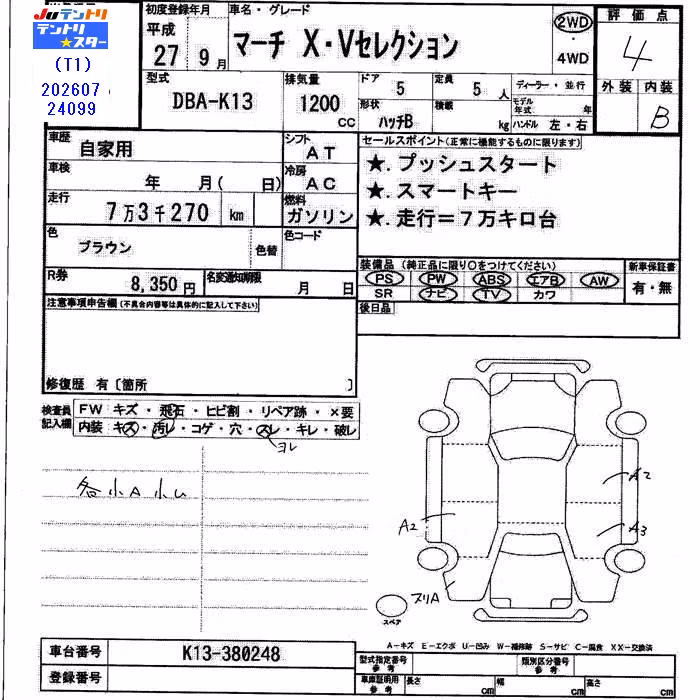 JU テントリ
テントリ★スター
(T1)
202607
24099
初度登録年月
平成
27 9月
車名・グレード
マーチ X・Vセレクション
2WD
・
4WD
評価点
4
外装 内装
B
型式
DBA-K13
排気量
1200 CC
ドア 5
形状 ハッチB
定員 5人
積載 kg
ディーラー・並行
モデル年式 年
ハンドル 左・右
車歴
自家用
シフト
AT
車検
年 月( 日)
冷房
AC
走行
7万3千270 km
燃料
ガソリン
色
ブラウン
色替
色コード
R券
8,350円
名変通知期限
月 日
セールスポイント(正常に機能するものに限ります)
★.プッシュスタート
★.スマートキー
★.走行=7万キロ台
装備品(純正品に限り〇をつけてください)
PS PW ABS エアB AW
SR ナビ TV カワ
新車保証書
有・無
後日品
注意事項申告欄(不具合内容等は具体的に記入して下さい)
修復歴 有〔箇所 〕
検査員記入欄
FW キズ・飛石・ヒビ割・リペア跡・×要
内装 キズ・汚レ・コゲ・穴・スレ・キレ・破レ
ヨレ
各小A小U
A2
A2
A3
ヌリA
スペア
A-キズ E-エクボ U-凹み W-補修跡 S-サビ C-腐食 XX-交換済
車台番号
K13-380248
登録番号
型式指定番号 参考
類別区分番号 参考
車庫証明用 参考
長さ cm
幅 cm
高さ cm